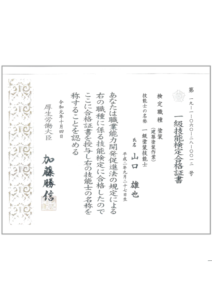 一級技能検定合格証書
検定職種 塗装
(建築塗装作業)
技能士の名称 一級塗装技能士
氏名 山口 雄也
あなたは職業能力開発促進法の規定による
右の職種に係る技能検定に合格したので
ここに合格証書を授与し右の技能士の名称を
称することを認める
令和元年十月四日
厚生労働大臣
加藤勝信